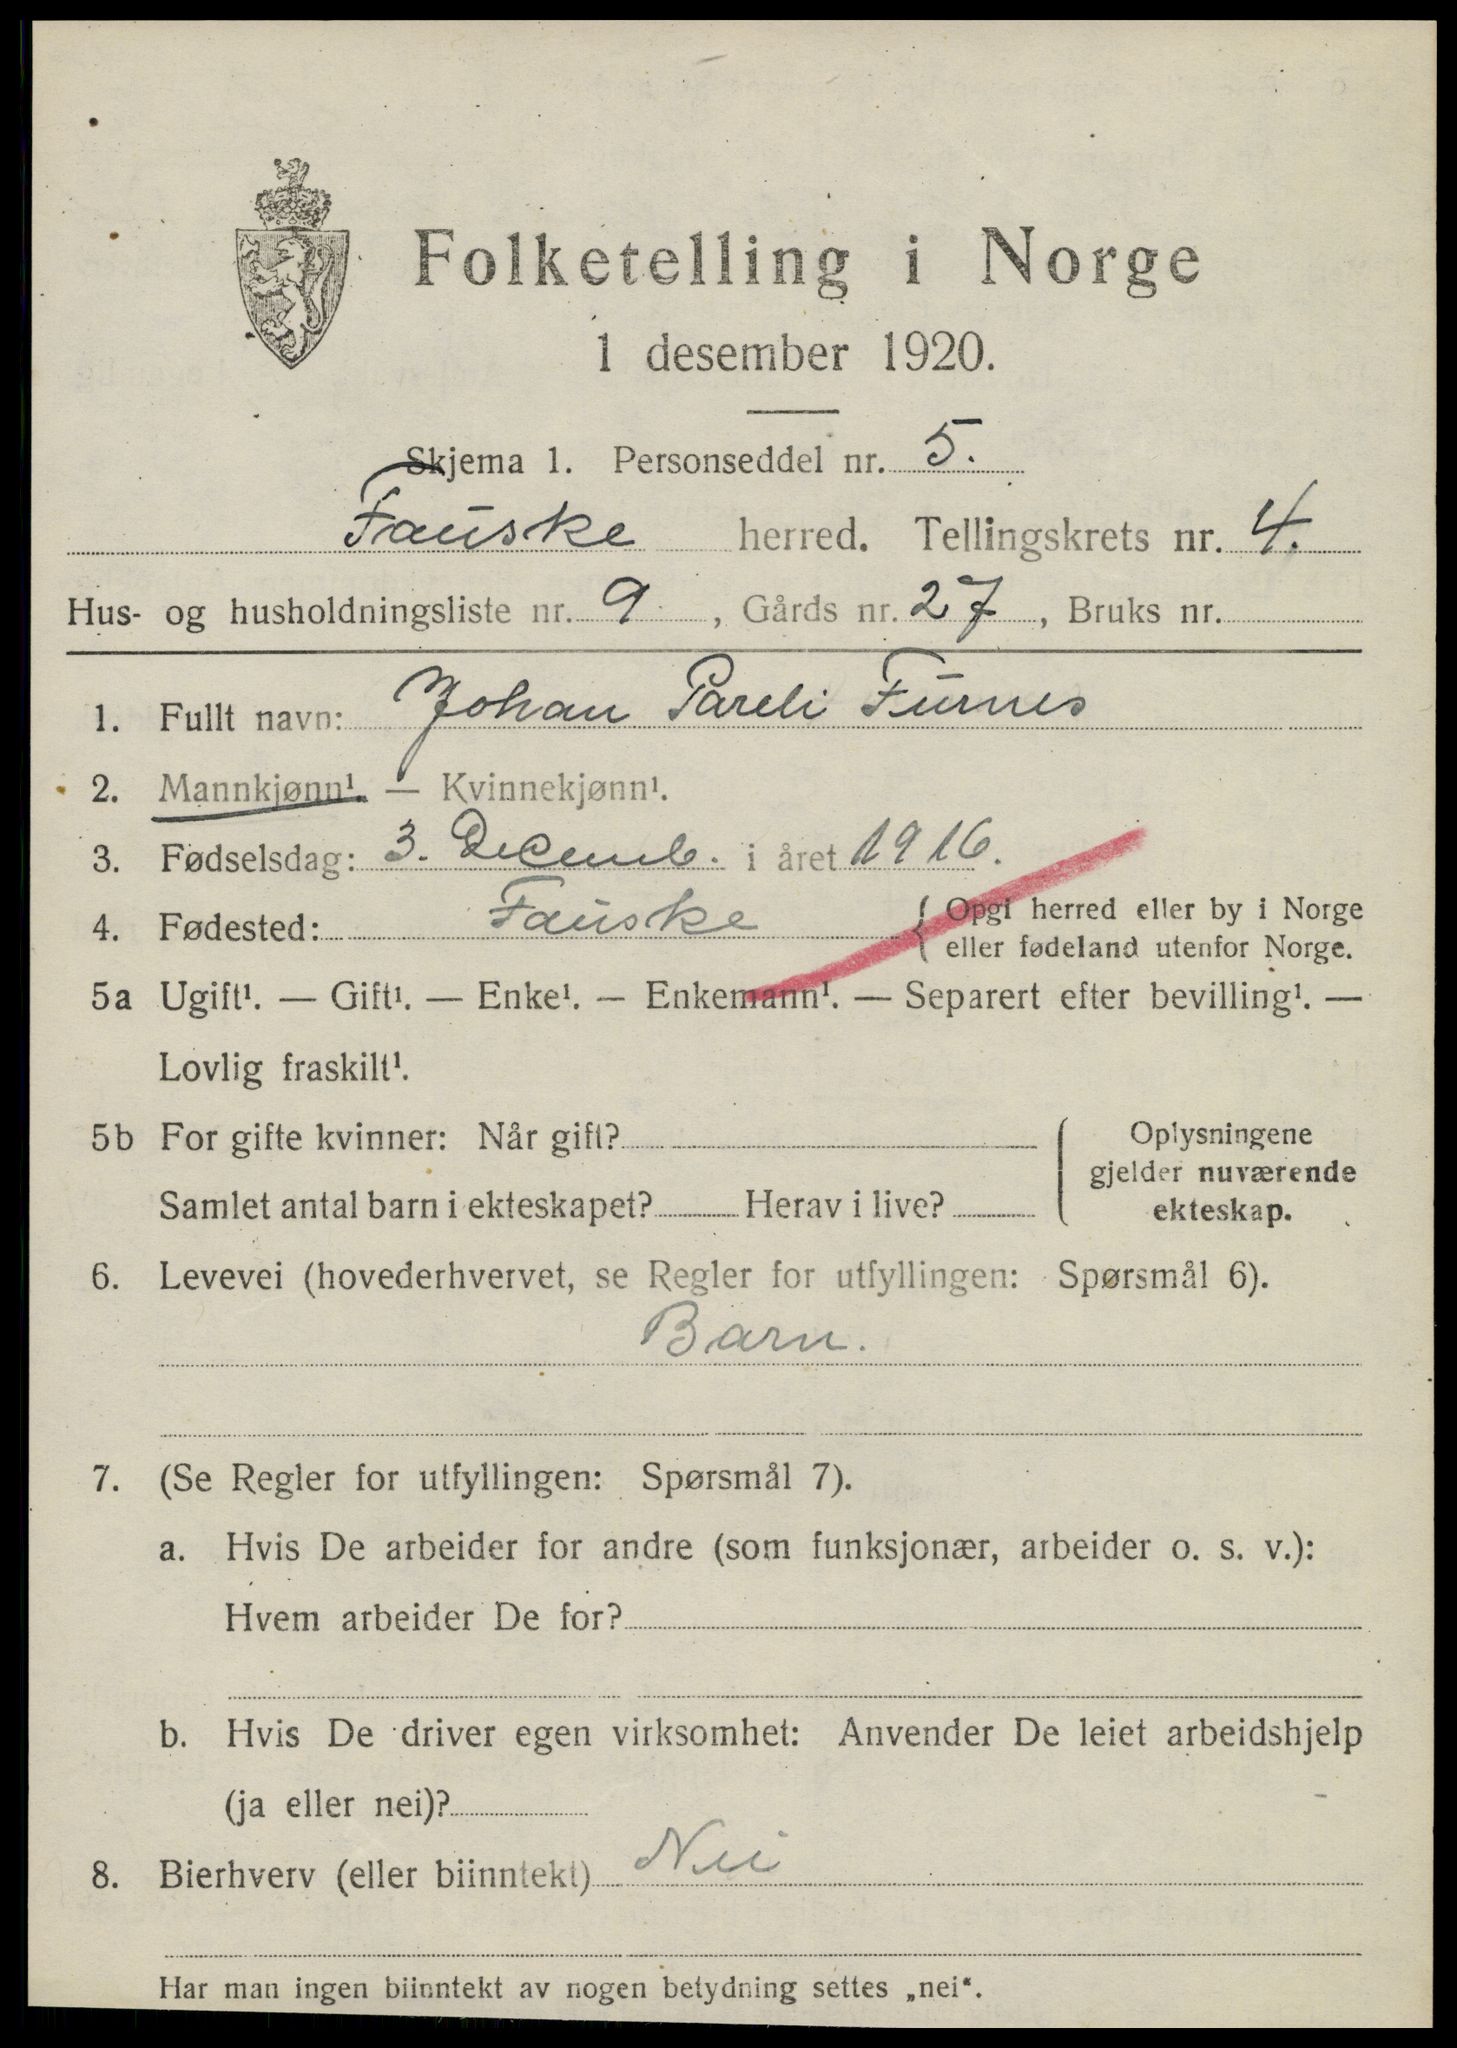 Folketelling i Norge
1 desember 1920.
Skjema 1. Personseddel nr. 5.
Fauske herred. Tellingskrets nr. 4.
Hus- og husholdningsliste nr. 9, Gårds nr. 27, Bruks nr.
1. Fullt navn: Johan Pareli Furnes
2. Mannkjønn¹. — Kvinnekjønn¹.
3. Fødselsdag: 3. Decemb. i året 1916.
4. Fødested: Fauske { Opgi herred eller by i Norge
eller fødeland utenfor Norge.
5a Ugift¹. — Gift¹. — Enke¹. — Enkemann¹. — Separert efter bevilling¹. —
Lovlig fraskilt¹.
5b For gifte kvinner: Når gift? { Oplysningene
gjelder nuværende
Samlet antal barn i ekteskapet? Herav i live? ekteskap.
6. Levevei (hovederhvervet, se Regler for utfyllingen: Spørsmål 6).
Barn.
7. (Se Regler for utfyllingen: Spørsmål 7).
a. Hvis De arbeider for andre (som funksjonær, arbeider o. s. v.):
Hvem arbeider De for?
b. Hvis De driver egen virksomhet: Anvender De leiet arbeidshjelp
(ja eller nei)?
8. Bierhverv (eller biinntekt) Nei
Har man ingen biinntekt av nogen betydning settes „nei“.